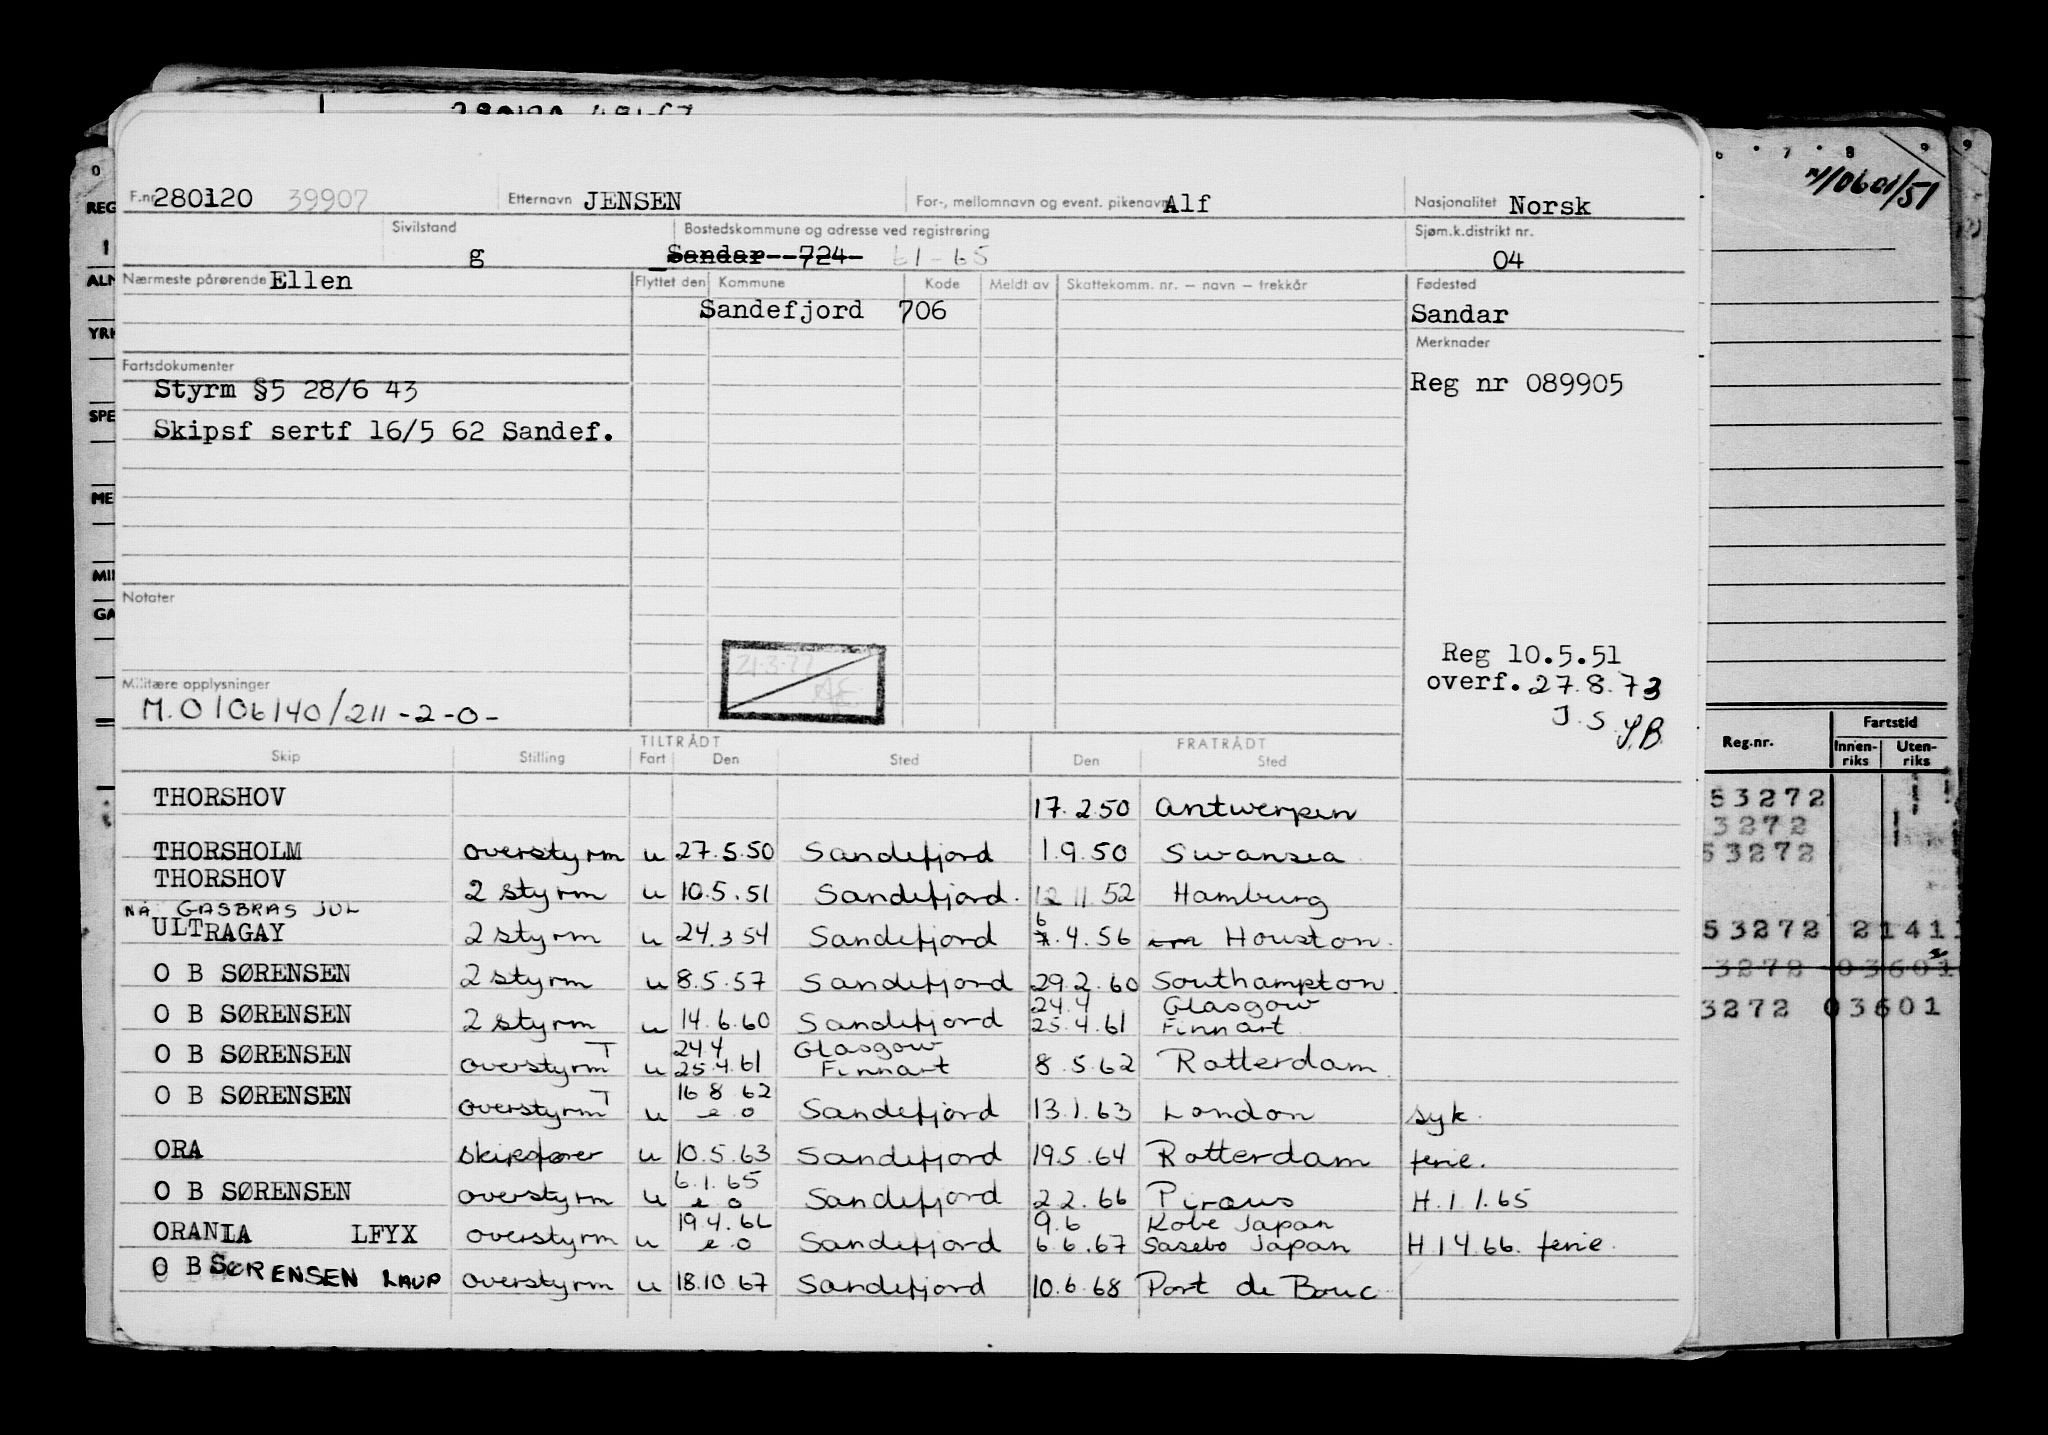 F.nr. 280120 39907 Etternavn JENSEN For-, mellomnavn og event. pikenavn Alf Nasjonalitet Norsk
Sivilstand g Bostedskommune og adresse ved registrering Sandar - 724 61-65 Sjøm.k.distrikt nr. 04
Nærmeste pårørende Ellen Flyttet den Kommune Kode Meldt av Skattekomm. nr. – navn – trekkår Fødested
Sandefjord 706 Sandar
Merknader
Fartsdokumenter
Styrm §5 28/6 43 Reg nr 089905
Skipsf sertf 16/5 62 Sandef.
Notater
21.3.77
Reg 10.5.51
Militære opplysninger overf. 27.8.73
M.0106140/211-2-0- J.S. S.B.
TILTRÅDT FRATRÅDT
Skip Stilling Fart Den Sted Den Sted
THORSHOV 17.2.50 Antwerpen
THORSHOLM overstyrm u 27.5.50 Sandefjord 1.9.50 Swansea
THORSHOV 2 styrm u 10.5.51 Sandefjord. 12 11 52 Hamburg
NÅ GASBRAS JUL
ULTRAGAY 2 styrm u 24.3 54 Sandefjord 6 7.4.56 Houston.
O B SØRENSEN 2 styrm u 8.5.57 Sandefjord 29.2.60 Southampton.
24.4 Glasgow
O B SØRENSEN 2 styrm u 14.6.60 Sandefjord 25.4.61 Finnart
24 4 Glasgow
O B SØRENSEN overstyrm T u 25.4.61 Finnart 8.5.62 Rotterdam.
16 8 62
O B SØRENSEN overstyrm T u e o Sandefjord 13.1.63 London syk.
ORA skipsfører u 10.5.63 Sandefjord 19.5.64 Rotterdam ferie.
6.1.65
O B SØRENSEN overstyrm u e o Sandefjord 2 2.66 Piraus H.1 1.65
19 4.66 9.6 Kobe Japan
ORANIA LFYX overstyrm u e o Sandefjord 6.6.67 Sasebo Japan H 1 4.66. ferie.
O B SØRENSEN LAUP overstyrm u 18.10.67 Sandefjord 10.6.68 Port de Bouc
0
REG
I
ALM
YRK
SPE
ME
MIL
GA
6 7 8 9
10601/51
Reg.nr. Fartstid
Innen-riks Uten-riks
53272
3272
53272
53272 21411
3272 03601
3272 03601